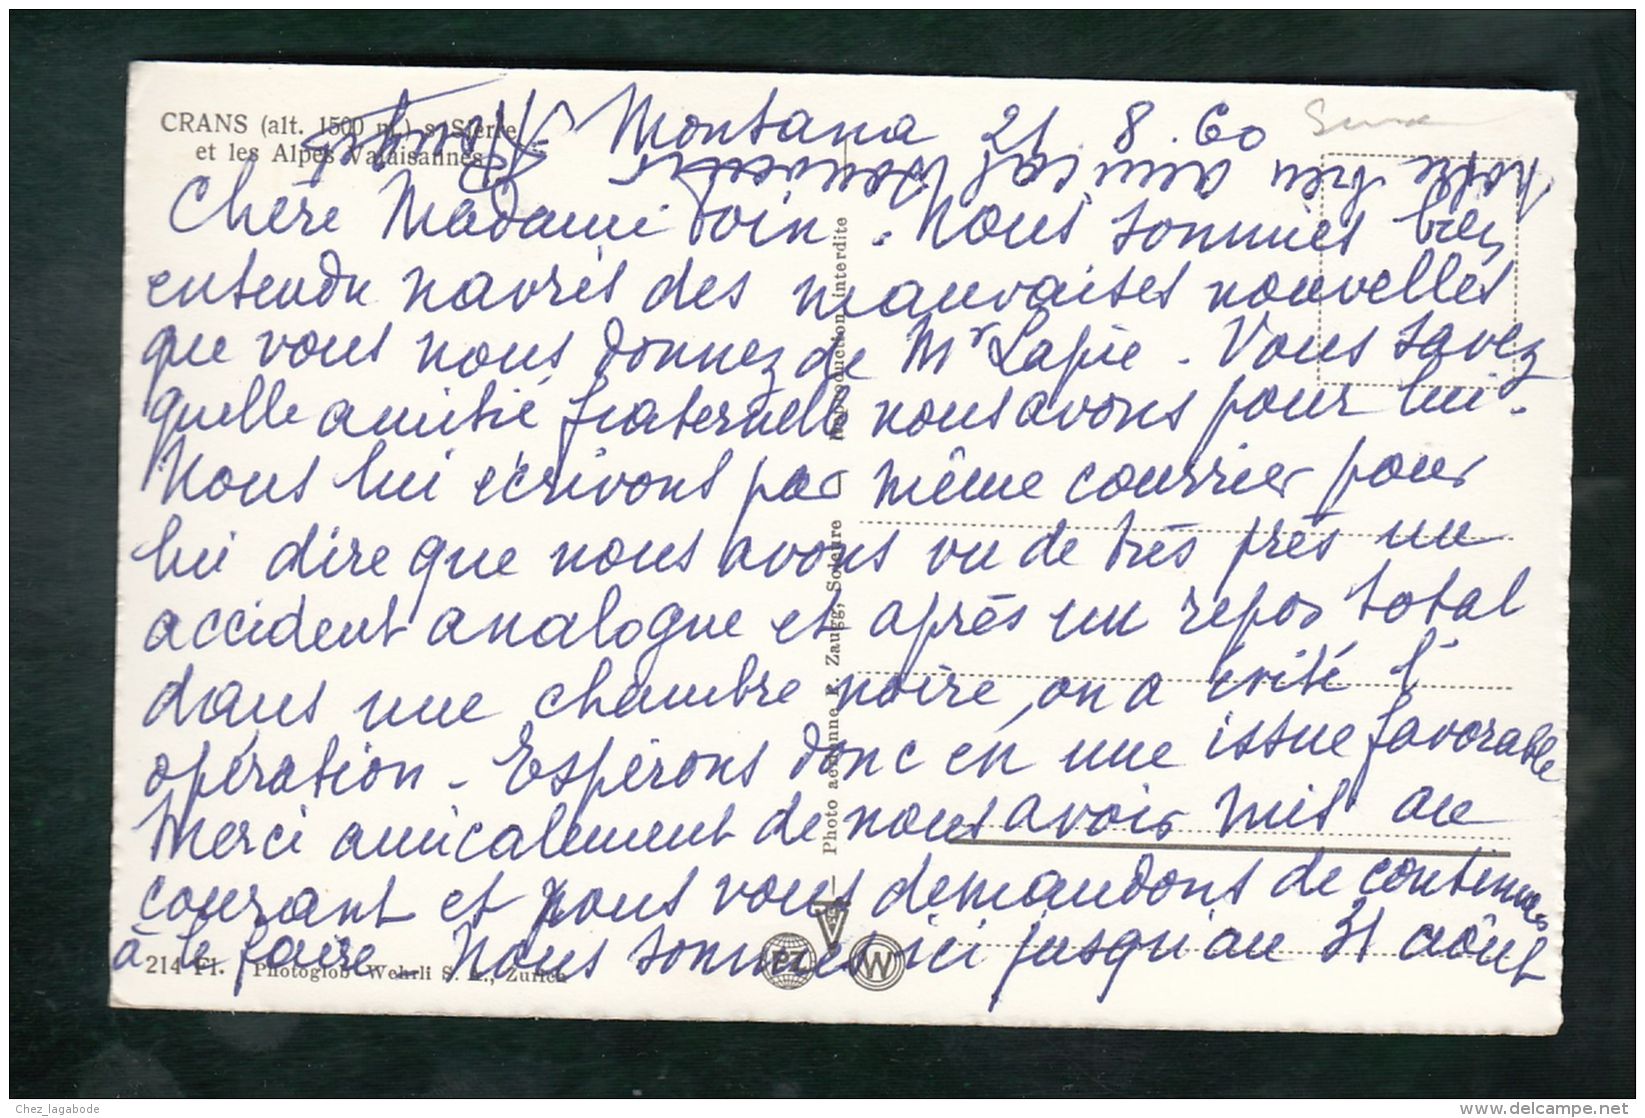 CRANS (alt. 1500 m.) s. Sierre
et les Alpes Valaisannes
Montana 21.8.60
Chère Madame Poin. Nous sommes bien
entendu navrés des mauvaises nouvelles
que vous nous donnez de Mr Lapie. Vous savez
quelle amitié fraternelle nous avons pour lui.
Nous lui écrivons par même courrier pour
lui dire que nous avons vu de très près un
accident analogue et après un repos total
dans une chambre noire, on a évité l'
opération - Espérons donc en une issue favorable
Merci amicalement de nous avoir mis au
courant et nous vous demandons de continuer
à le faire Nous sommes ici jusqu'au 31 août
notre très amical souvenir
214 Fl. Photoglob-Wehrli S. A., Zurich
Photo aérienne E. Zaugg, Soleure
Reproduction interdite
PZ
W
Chez_lagabode
delcampe.net